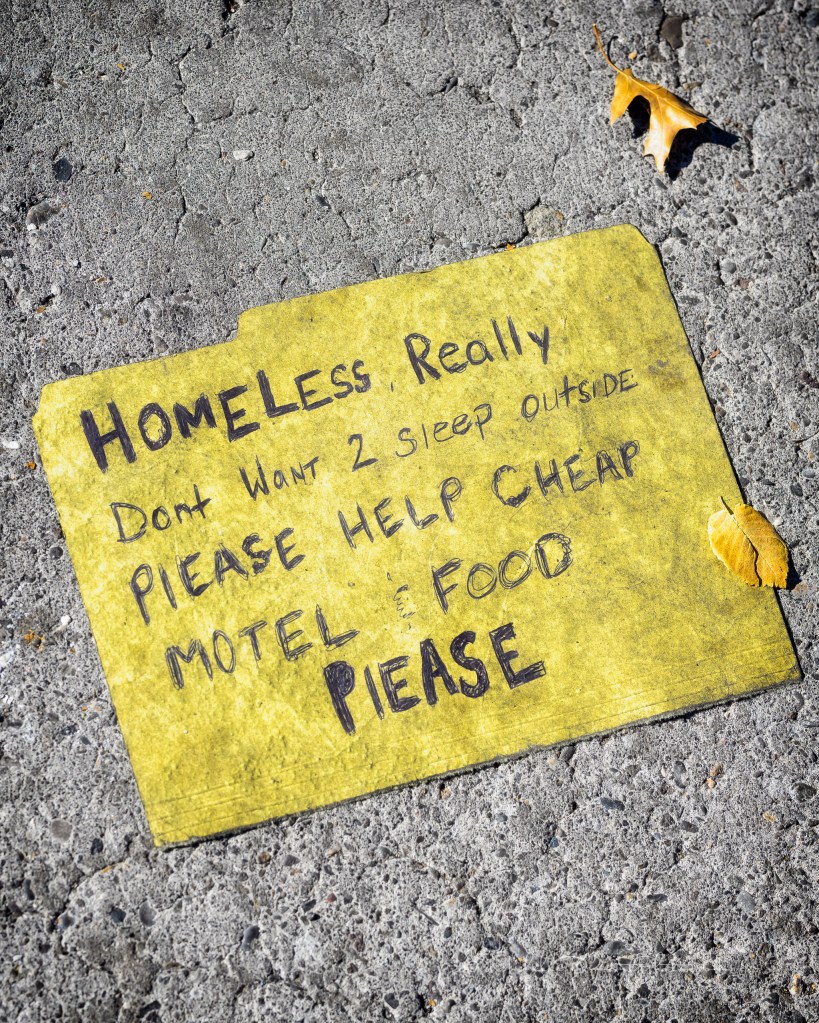 HOMELESS. Really
Dont WANT 2 sleep outSIDE
PlEASE HELP CHEAP
MOTEL & FOOD
PlEASE